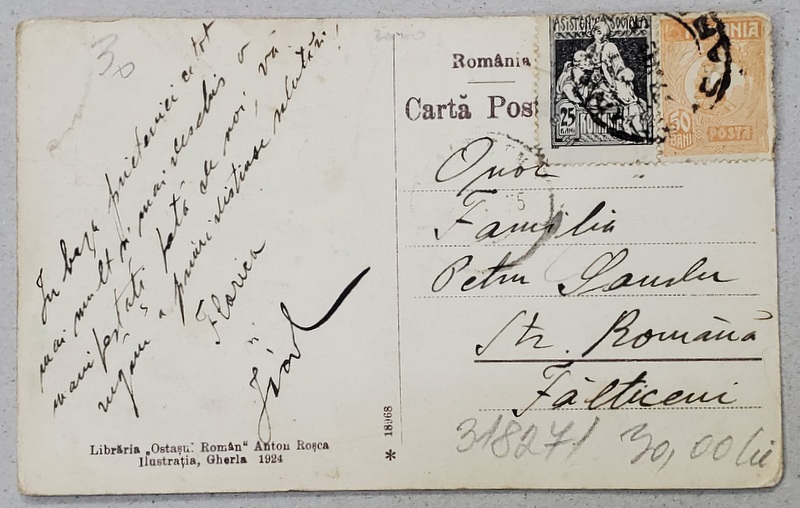 30
In baza prieteniei ce tot
mai mult și mai deschis o
manifestați față de noi, vă
rugăm a primi distinse salutări!
Florica
și
Librăria „Ostașul Român" Anton Roșca
Ilustrația, Gherla 1924
* 18968
România
Cartă Poș
ASISTENȚA SOCIALA
25
BANI
ROMANIA
50
BANI
POSTA
Onor
Familia
Petru Sandu
Str. Română
Fălticeni
318271 30,00 lei